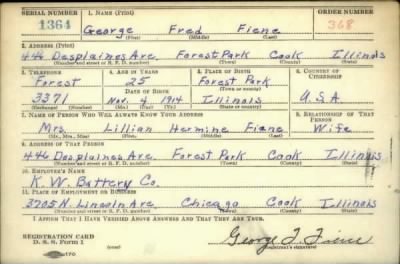 SERIAL NUMBER 1. NAME (Print) ORDER NUMBER
1364 George Fred Fiene 368
(First) (Middle) (Last)
2. ADDRESS (Print)
446 Desplaines Ave. Forest Park Cook Illinois
(Number and street or R. F. D. number) (Town) (County) (State)
3. TELEPHONE 4. AGE IN YEARS 5. PLACE OF BIRTH 6. COUNTRY OF CITIZENSHIP
Forest 25 Forest Park
DATE OF BIRTH (Town or county)
3371 Nov. 4 1914 Illinois U.S.A
(Exchange) (Number) (Mo.) (Day) (Yr.) (State or country)
7. NAME OF PERSON WHO WILL ALWAYS KNOW YOUR ADDRESS 8. RELATIONSHIP OF THAT PERSON
Mrs. Lillian Hermine Fiene Wife
(Mr., Mrs., Miss) (First) (Middle) (Last)
9. ADDRESS OF THAT PERSON
446 Desplaines Ave. Forest Park Cook Illinois
(Number and street or R. F. D. number) (Town) (County) (State)
10. EMPLOYER'S NAME
K. W. Battery Co.
11. PLACE OF EMPLOYMENT OR BUSINESS
3705 N. Lincoln Ave. Chicago Cook Illinois
(Number and street or R. F. D. number) (Town) (County) (State)
I AFFIRM THAT I HAVE VERIFIED ABOVE ANSWERS AND THAT THEY ARE TRUE.
REGISTRATION CARD
D. S. S. Form 1 George F. Fiene
(Registrant's signature)